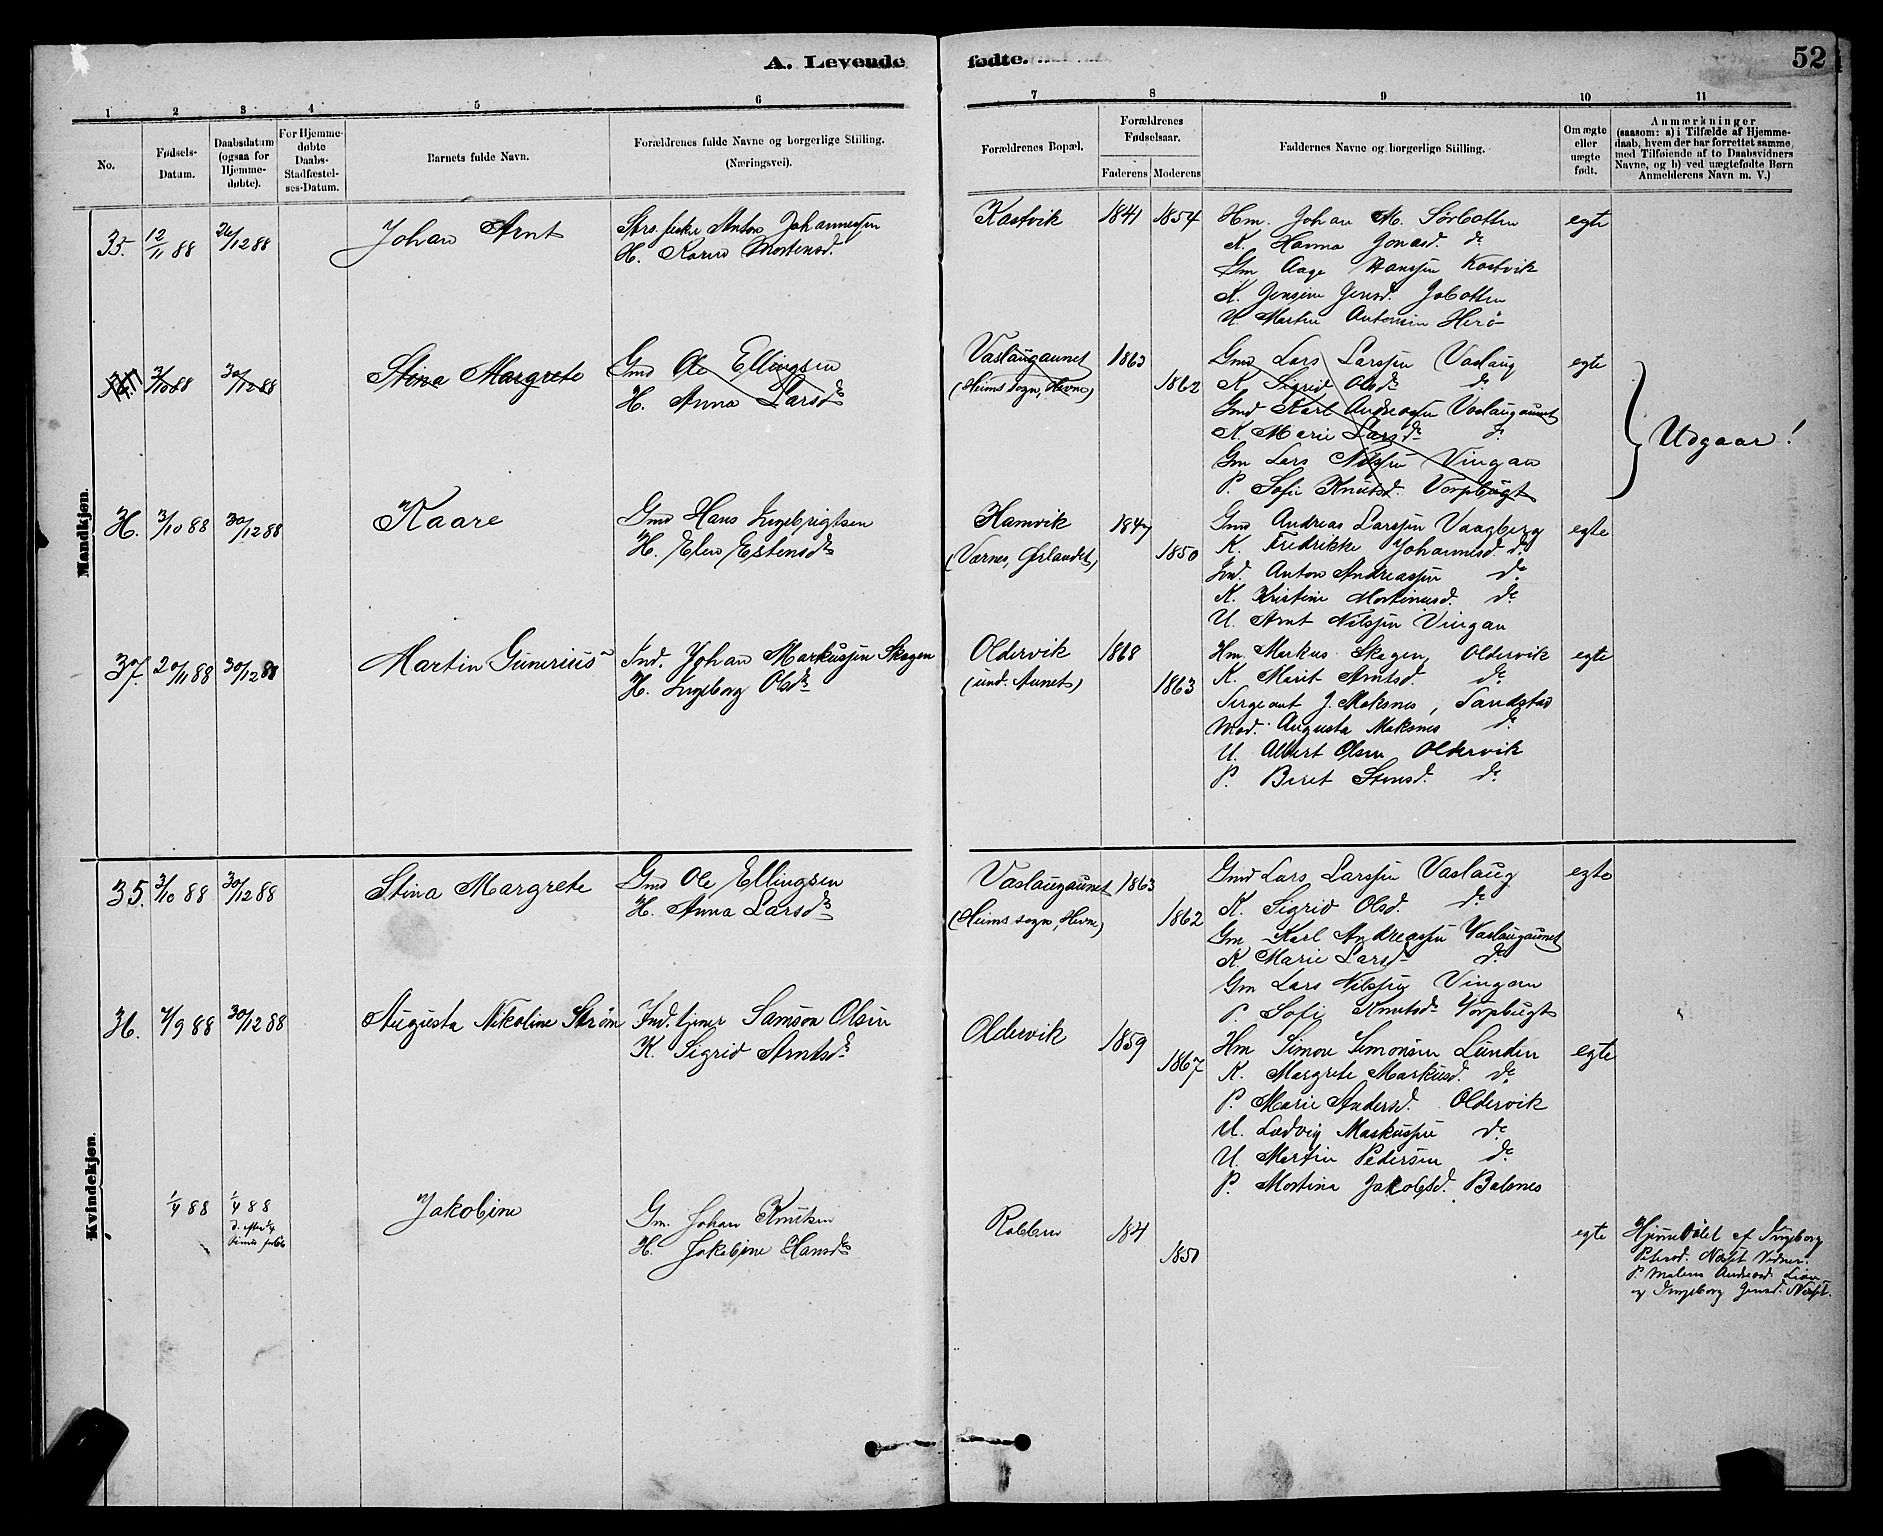 A. Levende fødte.
52
1 2 3 4 5 6 7 8 9 10 11
No.
Fødsels-Datum.
Daabsdatum (ogsaa for Hjemme-døbte).
For Hjemme-døbte Daabs-Stadfæstel-ses-Datum.
Barnets fulde Navn.
Forældrenes fulde Navne og borgerlige Stilling. (Næringsvei).
Forældrenes Bopæl.
Forældrenes Fødselsaar.
Faderens Moderens
Faddernes Navne og borgerlige Stilling.
Om ægte eller uægte født.
Anmærkninger
(saasom: a) i Tilfælde af Hjemme-
daab, hvem der har forrettet samme,
med Tilføiende af to Daabsvidners
Navne, og b) ved uægtefødte Børn
Anmelderens Navn m. V.)
Mandkjøn.
35. 12/11 88 26/12 88 Johan Arnt
Strs. fisker Anton Johannessen
H. Karen Mortensd.
Kastvik 1841 1854
Hm. Johan M. Sörbotten
K. Hanna Jonasd. do
Gm Aage Hanssen Kastvik
K. Jensine Jensd.
U. Martin Antonsen Herö
egte
3/10 88 30/12 88 Stina Margrete
Gmd Ole Ellingsen
H. Anna Larsdr
Vaslaugaunet
(Heims sogn, Hevne)
1863 1862
Gmd Lars Larssen Vaslaug
K. Sigrid Olsdr do
Gmd Karl Andreassen Vaslaugaunet
K. Marie Larsdr do
Gm Lars Nilssen Vingan
P. Sofie Knutsd. Vorpbugt
egte
Udgaar!
36. 3/10 88 30/12 88 Kaare
Gmd Hans Ingebrigtsen
H. Elen Estensdr
Hamvik
(Værnes, Ørlandet)
1847 1850
Gmd Andreas Larssen Vaagberg
K. Fredrikke Johannesd. do
Ind. Anton Andreassen do
K. Kristine Mortinusd. do
U. Arnt Nilssen Vingan
egte
37. 20/11 88 30/12 88 Martin Gunerius
Ind. Johan Markussen Skagen
H. Ingeborg Olsdr
Oldervik
(und. Aunet)
1868 1863
Hm Markus Skagen, Oldervik
K. Marit Arntsd. do
Sergeant J. Moksnes, Sandstad
Mad. Augusta Moksnes do
U. Albert Olsen Oldervik
P. Beret Stensd. do
egte
Kvindekjøn.
35. 3/10 88 30/12 88 Stina Margrete
Gmd Ole Ellingsen
H. Anna Larsdr
Vaslaugaunet
(Heims sogn, Hevne)
1863 1862
Gmd Lars Larssen Vaslaug
K. Sigrid Olsd. do
Gm Karl Andreassen Vaslaugaunet
K. Marie Larsd. do
Gm Lars Nilssen Vingan
P. Sofie Knutsdr Vorpbugt
egte
36. 7/9 88 30/12 88 Augusta Nikoline Strøm
Ind. tjener Samson Olsen
K. Sigrid Arntsdr
Oldervik
1859 1867
Hm Simon Simonsen Lunden
K. Margrete Markusd. do
P. Marie Andersd. Oldervik
U. Ludvig Markussen do
U. Martin Pedersen do
P. Mortina Jakobsd. Balsnes
egte
1/4 88 1/4 88 Jakobine
Gm. Johan Knutsen
H. Jakobine Hansdr
184 1850
egte
Hjemmedöbt af Ingeborg
Petersd. Næsset Vidner:
P. Malena Andreasd. Lian
og Ingeborg Jensd. Næsset.